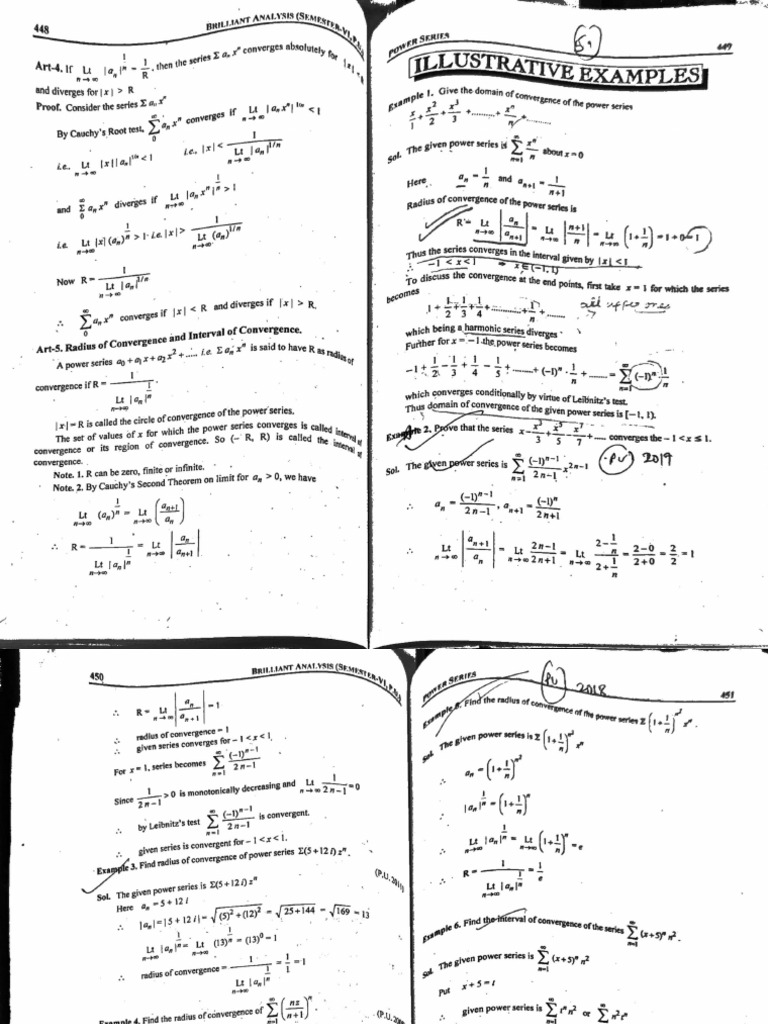 448
BRILLIANT ANALYSIS (SEMESTER-VI, P.U.)
Art-4. If Lt n→∞ |aₙ|^(1/n) = 1/R, then the series Σ aₙ xⁿ converges absolutely for |x| < R
and diverges for |x| > R
Proof. Consider the series Σ aₙ xⁿ
By Cauchy's Root test, Σ₀^∞ aₙ xⁿ converges if Lt n→∞ |aₙ xⁿ|^(1/n) < 1
i.e., Lt n→∞ |x| |aₙ|^(1/n) < 1 i.e., |x| < 1 / Lt n→∞ |aₙ|^(1/n)
and Σ₀^∞ aₙ xⁿ diverges if Lt n→∞ |aₙ xⁿ|^(1/n) > 1
i.e. Lt n→∞ |x| (aₙ)^(1/n) > 1 i.e. |x| > 1 / Lt n→∞ (aₙ)^(1/n)
Now R = 1 / Lt n→∞ |aₙ|^(1/n)
∴ Σ₀^∞ aₙ xⁿ converges if |x| < R and diverges if |x| > R.
Art-5. Radius of Convergence and Interval of Convergence.
A power series a₀ + a₁ x + a₂ x² + ..... i.e. Σ aₙ xⁿ is said to have R as radius of
convergence if R = 1 / Lt n→∞ |aₙ|^(1/n)
|x| = R is called the circle of convergence of the power series.
The set of values of x for which the power series converges is called interval of
convergence or its region of convergence. So (– R, R) is called the interval of
convergence.
Note. 1. R can be zero, finite or infinite.
Note. 2. By Cauchy's Second Theorem on limit for aₙ > 0, we have
Lt n→∞ (aₙ)^(1/n) = Lt n→∞ (aₙ₊₁ / aₙ)
∴ R = 1 / Lt n→∞ |aₙ|^(1/n) = Lt n→∞ |aₙ / aₙ₊₁|
POWER SERIES
449
ILLUSTRATIVE EXAMPLES
Example 1. Give the domain of convergence of the power series
x/1 + x²/2 + x³/3 + .......... + xⁿ/n + ........
Sol. The given power series is Σ n=1^∞ xⁿ/n about x = 0
Here aₙ = 1/n and aₙ₊₁ = 1/(n+1)
Radius of convergence of the power series is
R = Lt n→∞ |aₙ / aₙ₊₁| = Lt n→∞ |(n+1)/n| = Lt n→∞ (1 + 1/n) = 1 + 0 = 1
Thus the series converges in the interval given by |x| < 1
∴ – 1 < x < 1 ⇒ x ∈ (–1, 1)
To discuss the convergence at the end points, first take x = 1 for which the series
becomes
1 + 1/2 + 1/3 + 1/4 + ......... + 1/n + .......
which being a harmonic series diverges
Further for x = – 1 the power series becomes
–1 + 1/2 – 1/3 + 1/4 – 1/5 + ........ + (–1)ⁿ · 1/n + ........ = Σ n=1^∞ (–1)ⁿ · 1/n
which converges conditionally by virtue of Leibnitz's test.
Thus domain of convergence of the given power series is [–1, 1).
Example 2. Prove that the series x – x³/3 + x⁵/5 – x⁷/7 + ..... converges the – 1 < x ≤ 1.
PU 2019
Sol. The given power series is Σ n=1^∞ (–1)ⁿ⁻¹/(2n–1) x²ⁿ⁻¹
∴ aₙ = (–1)ⁿ⁻¹/(2n–1), aₙ₊₁ = (–1)ⁿ/(2n+1)
∴ Lt n→∞ |aₙ₊₁ / aₙ| = Lt n→∞ (2n–1)/(2n+1) = Lt n→∞ (2 – 1/n)/(2 + 1/n) = (2–0)/(2+0) = 2/2 = 1
450
BRILLIANT ANALYSIS (SEMESTER-VI, P.U.)
∴ R = Lt n→∞ |aₙ / aₙ₊₁| = 1
∴ radius of convergence = 1
∴ given series converges for – 1 < x < 1
For x = 1, series becomes Σ n=1^∞ (–1)ⁿ⁻¹/(2n–1)
Since 1/(2n–1) > 0 is monotonically decreasing and Lt n→∞ 1/(2n–1) = 0
∴ by Leibnitz's test Σ n=1^∞ (–1)ⁿ⁻¹/(2n–1) is convergent.
∴ given series is convergent for – 1 < x < 1.
Example 3. Find radius of convergence of power series Σ(5 + 12 i) zⁿ.
(P.U. 2011)
Sol. The given power series is Σ(5 + 12 i) zⁿ
Here aₙ = 5 + 12 i
∴ |aₙ| = |5 + 12 i| = √((5)² + (12)²) = √(25 + 144) = √169 = 13
Lt n→∞ |aₙ|^(1/n) = Lt n→∞ (13)^(1/n) = (13)⁰ = 1
∴ radius of convergence = 1 / Lt n→∞ |aₙ|^(1/n) = 1/1 = 1
Example 4. Find the radius of convergence of Σ n=1^∞ (nz/(n+1))ⁿ.
POWER SERIES
PU 2018
451
Find the radius of convergence of the power series Σ (1 + 1/n)^(n²) xⁿ.
Sol. The given power series is Σ (1 + 1/n)^(n²) xⁿ
∴ aₙ = (1 + 1/n)^(n²)
∴ |aₙ|^(1/n) = (1 + 1/n)ⁿ
∴ Lt n→∞ |aₙ|^(1/n) = Lt n→∞ (1 + 1/n)ⁿ = e
∴ R = 1 / Lt n→∞ |aₙ|^(1/n) = 1/e
Example 6. Find the interval of convergence of the series Σ n=1^∞ (x+5)ⁿ n².
Sol. The given power series is Σ n=1^∞ (x+5)ⁿ n²
Put x + 5 = t
∴ given power series is Σ n=1^∞ tⁿ n² or Σ n=1^∞ n² tⁿ